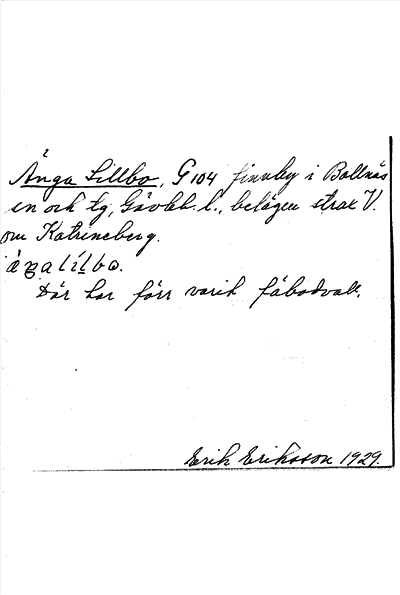 Ånga Lillbo, G 104 finnby i Bollnäs
sn och tg, Gävleb. l., belägen strax V.
om Katrineberg.
Där har förr varit fäbodvall.
Erik Eriksson 1929.